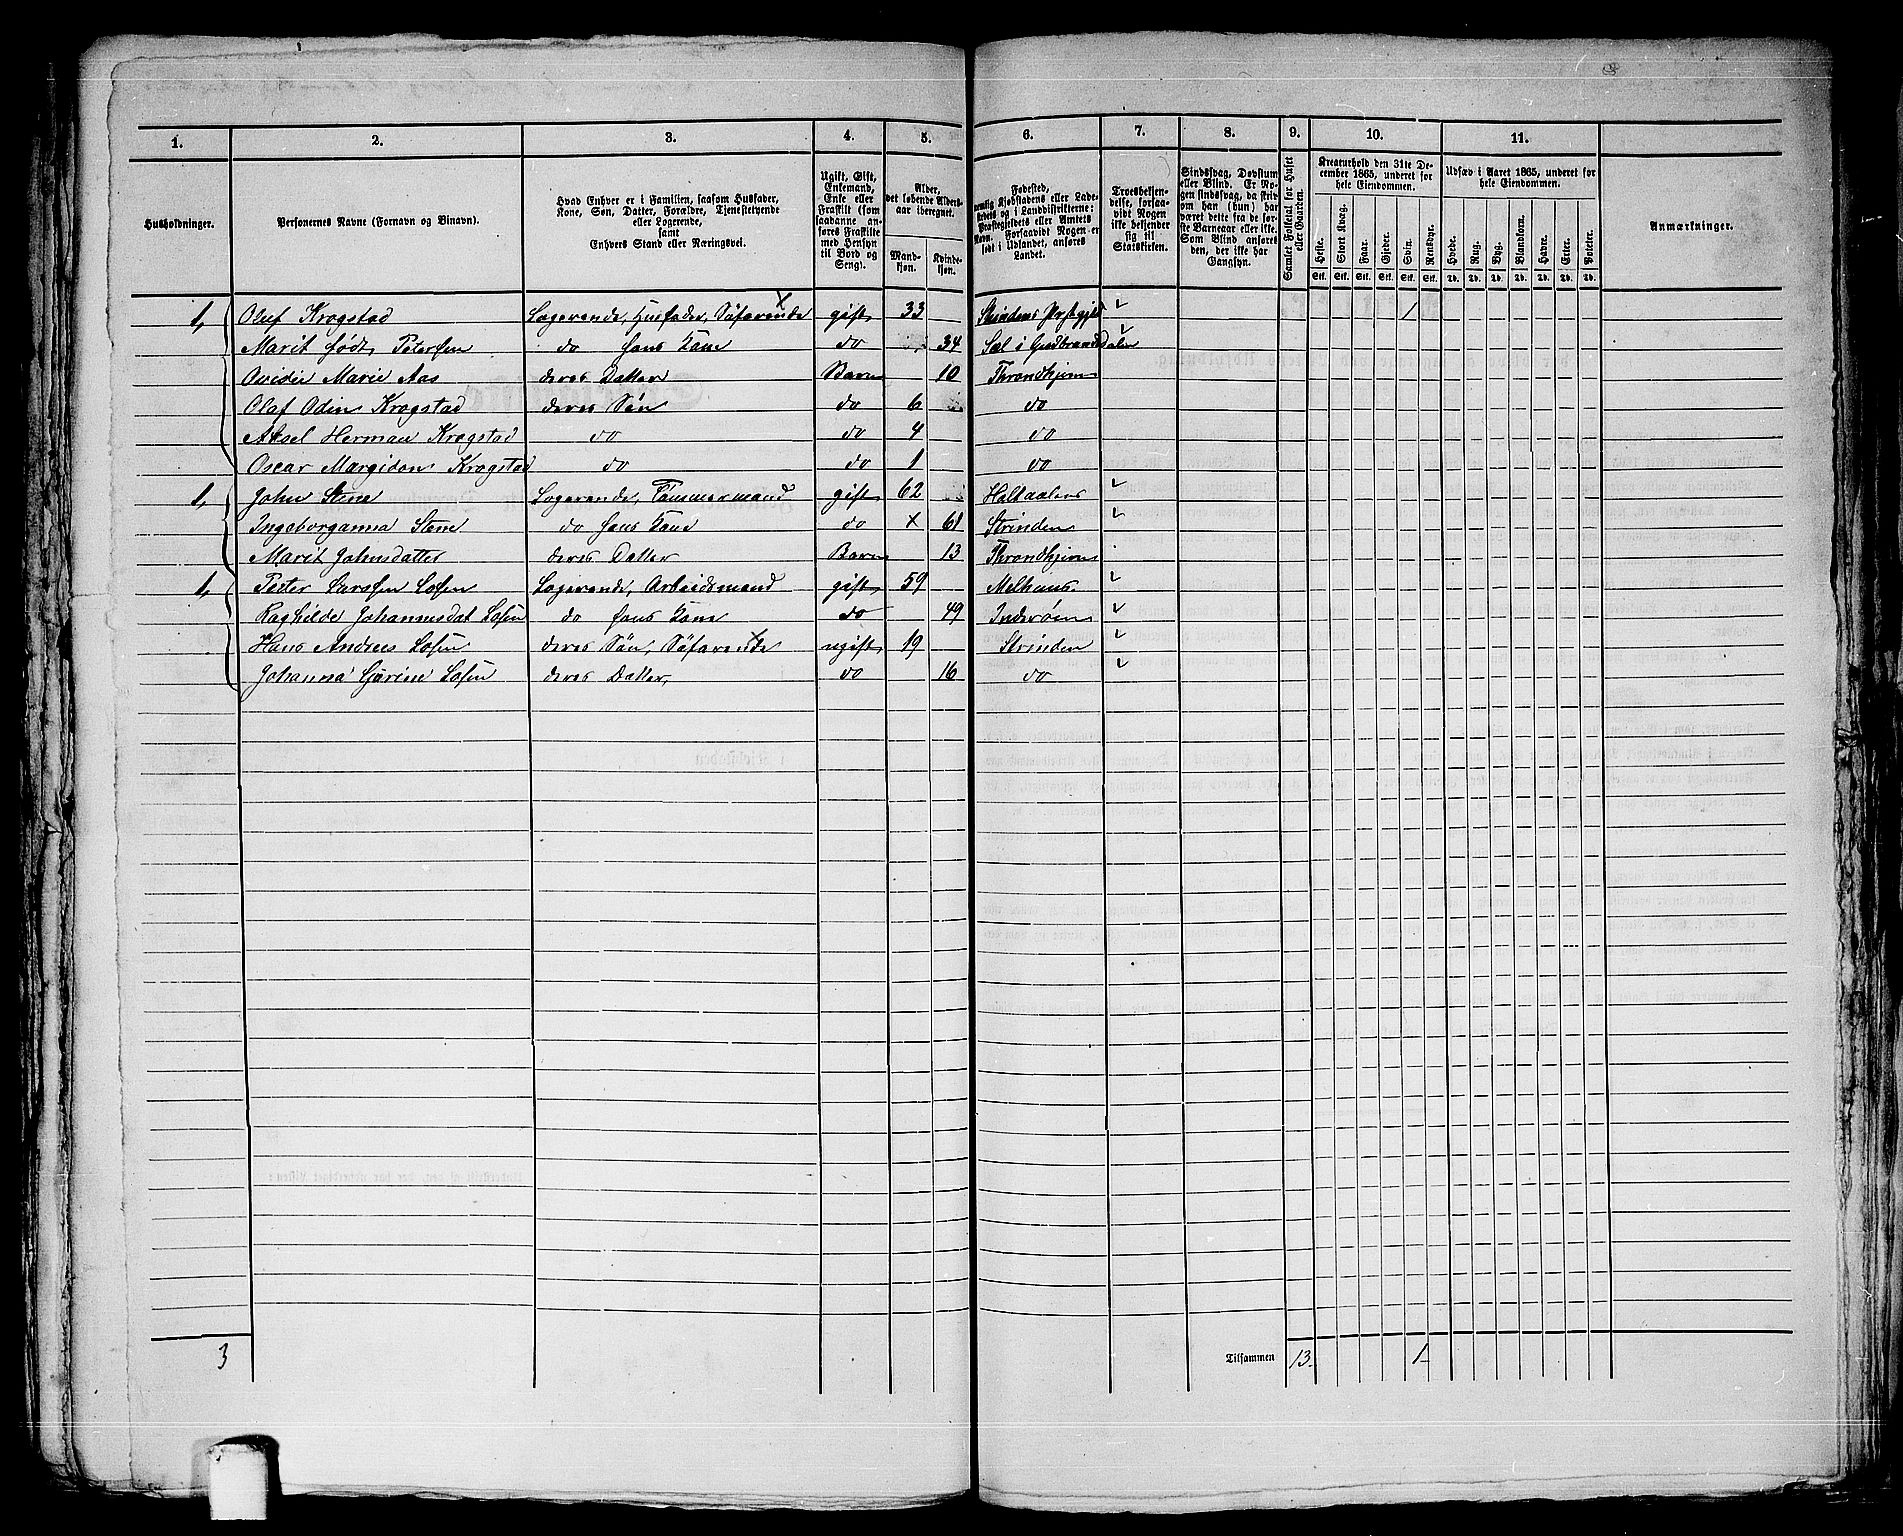 1. 2. 3. 4. 5. 6. 7. 8. 9. 10. 11.
Husholdninger.
Personernes Navne (Fornavn og Binavn).
Hvad Enhver er i Familien, saasom Husfader,
Kone, Søn, Datter, Forældre, Tjenestetyende
eller Logerende,
samt
Enhvers Stand eller Næringsvei.
Ugift, Gift,
Enkemand,
Enke eller
Fraskilt (som
saadanne an-
føres Fraskilte
med Hensyn
til Bord og
Seng).
Alder,
det løbende Alders-
aar iberegnet.
Mand-
kjøn.
Kvinde-
kjøn.
Fødested,
nemlig Kjøbstadens eller Lade-
stedets og i Landdistrikterne:
Præstegjeldets eller Amtets
Navn. Forsaavidt Nogen er
født i Udlandet, anføres
Landet.
Troesbekjen-
delse, forsaa-
vidt Nogen
ikke bekjender
sig til
Statskirken.
Sindssvag, Døvstum
eller Blind. Er No-
gen sindssvag, da skriv
om han (hun) har
været dette fra de før-
ste Barneaar eller ikke.
Som Blind anføres
den, der ikke har
Gangsyn.
Samlet Folketal for Huset
eller Gaarden.
Kreaturhold den 31te De-
cember 1865, underet for
hele Eiendommen.
Heste. Stort Kvæg. Faar. Gjeder. Svin. Rensdyr.
Stk. Stk. Stk. Stk. Stk. Stk.
Udsæd i Aaret 1865, underet for
hele Eiendommen.
Hvede. Rug. Byg. Blandkorn. Havre. Erter. Poteter.
Td. Td. Td. Td. Td. Td. Td.
Anmærkninger.
1, Oluf Krogstad Logerende, Husfader, Søfarende gift 33 Strindens Prstgjld 1
Marit født Petersen do hans Kone do 34 Sel i Gudbrandsdalen
Ovidie Marie Aas deres Datter Barn 10 Throndhjem
Olaf Odin Krogstad deres Søn do 6 do
Aksel Herman Krogstad do do 4 do
Oscar Margidon Krogstad do do 1 do
1, John Stene Logerende, Tømmermand gift 62 Holtaalens
Ingeborganna Stene do hans Kone do x 61 Strinden
Marit Johnsdatter deres Datter Barn 13 Throndhjem
1, Peter Larssen Losen Logerende, Arbeidsmand gift 59 Melhuus
Raghilde Johannesdat Losen do hans Kone do 49 Inderøen
Hans Andreas Losen deres Søn, Søfarende ugift 19 Strinden
Johanna Gurine Losen deres Datter, do 16 do
3 Tilsammen 13. 1-